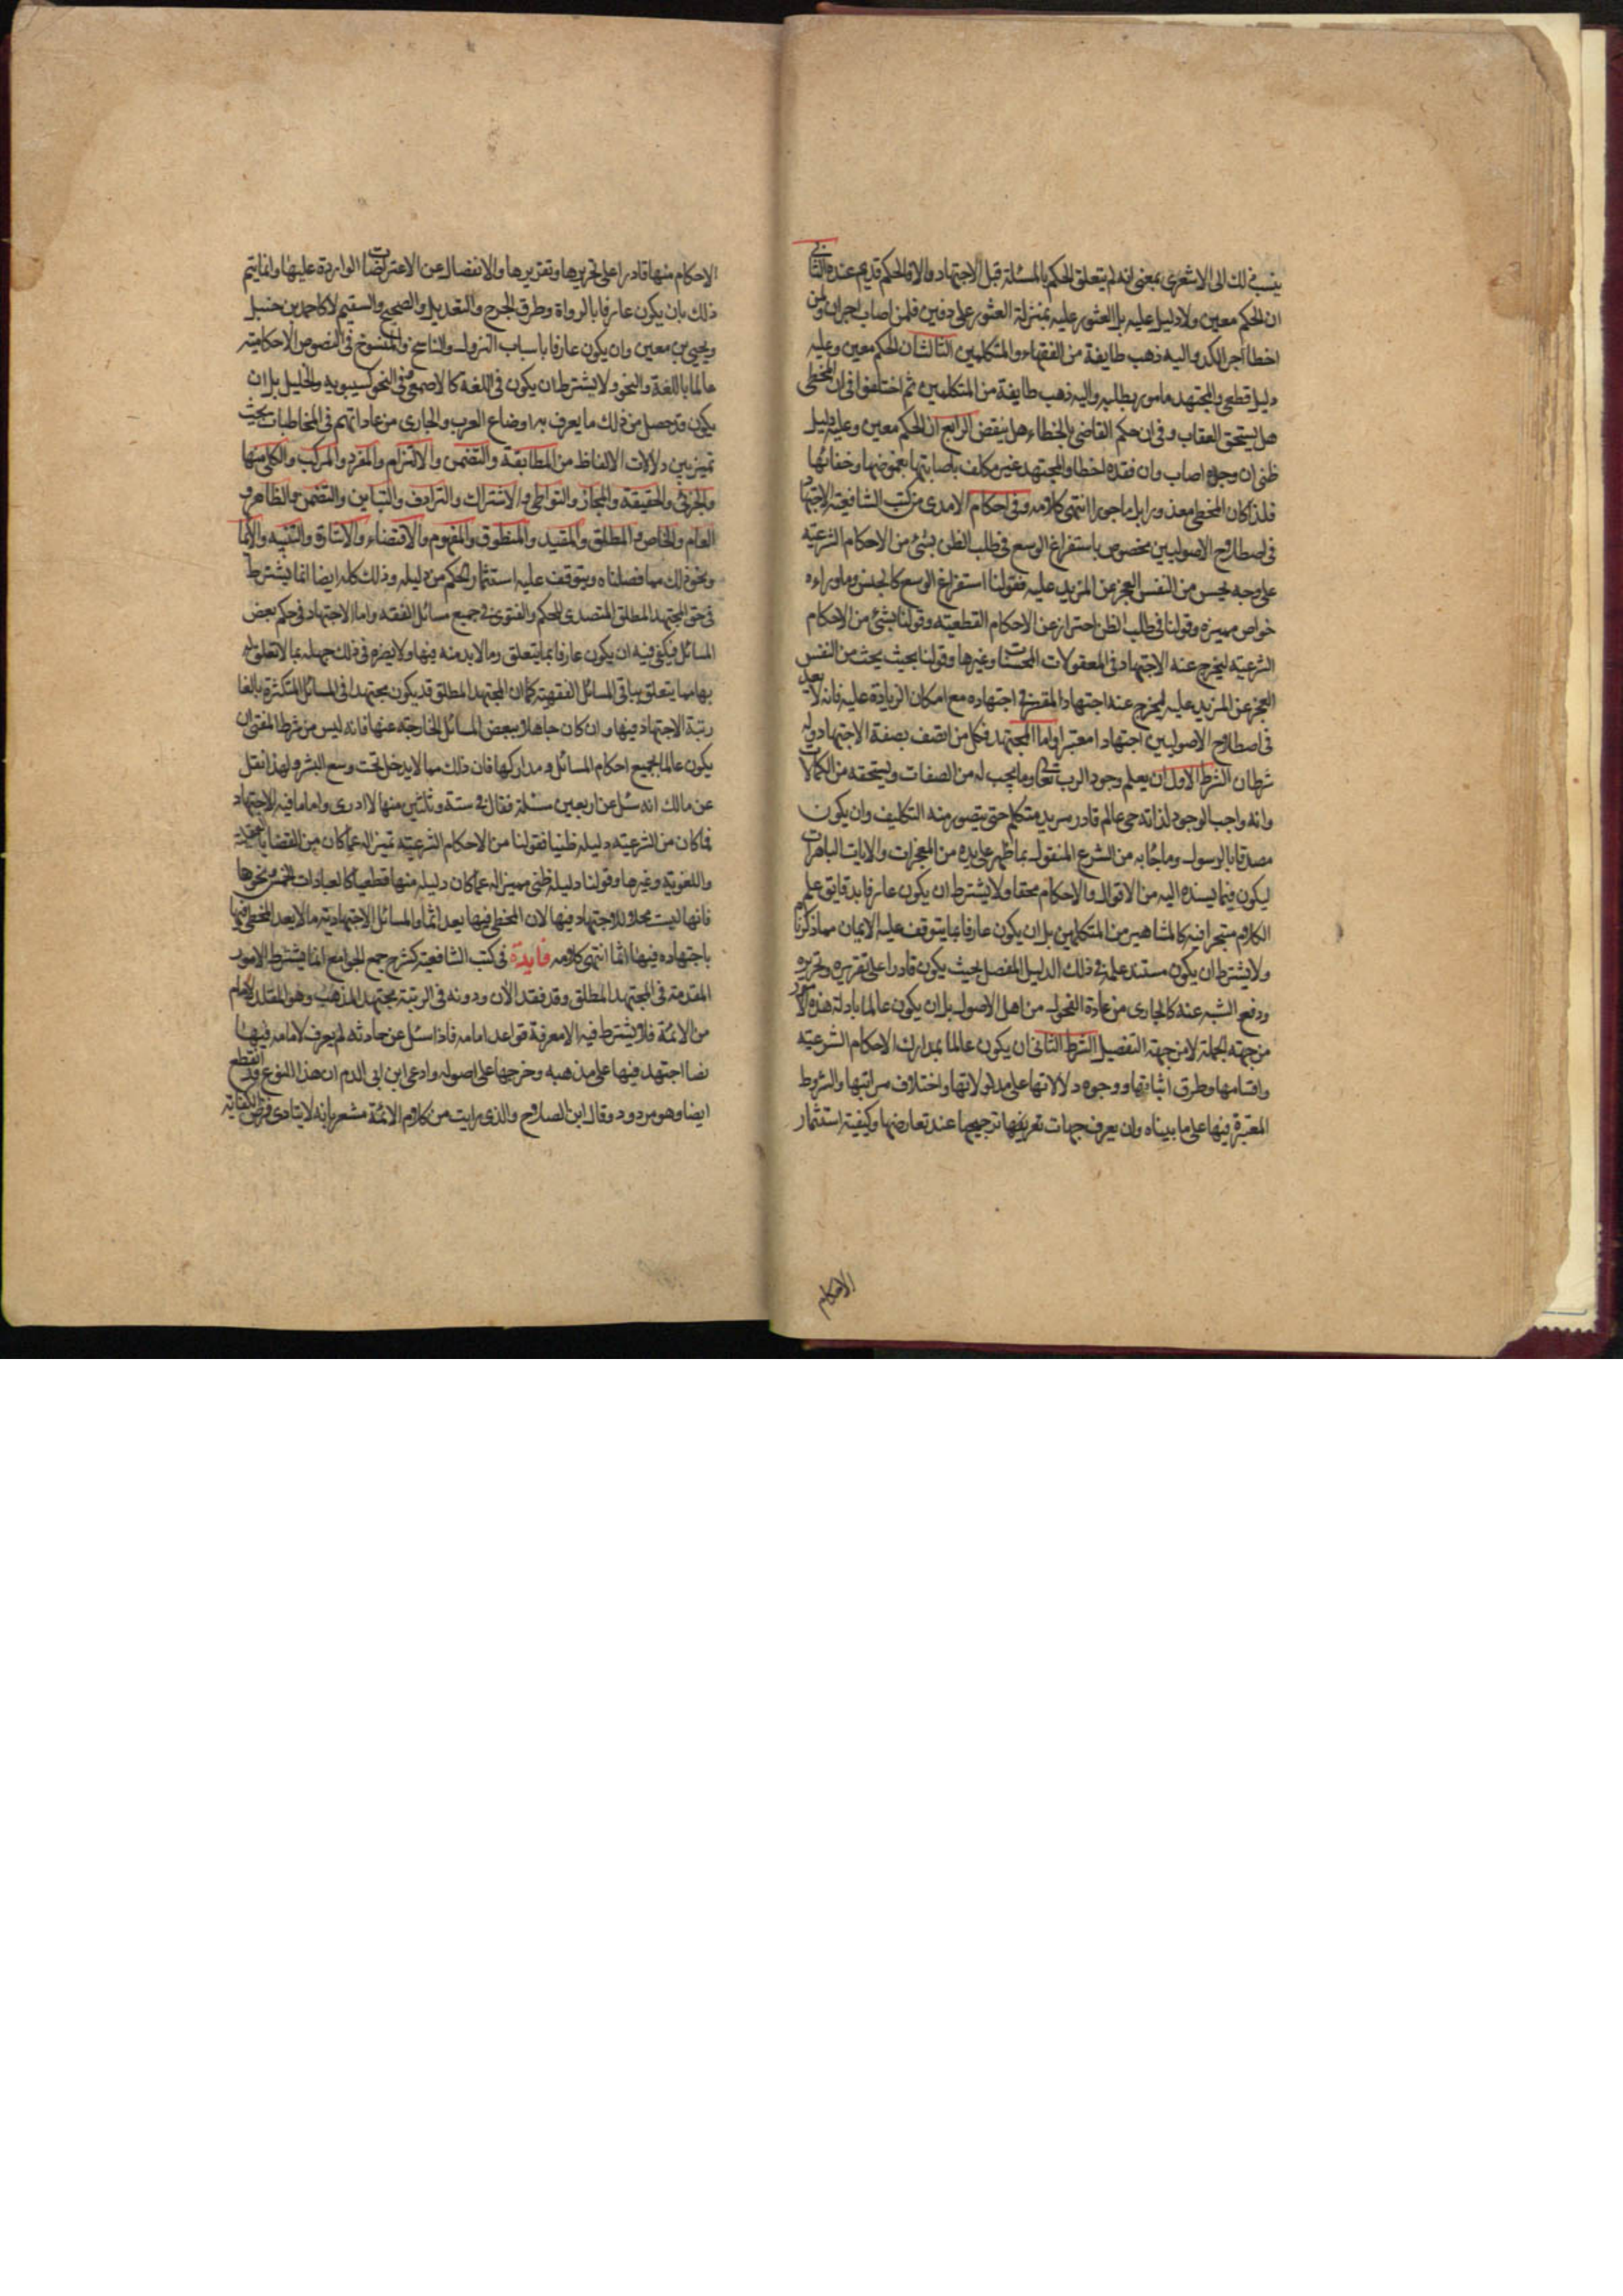 ينسب ذلك الى الاشعرى بمعنى انه لم يتعلق الحكم بالمسئلة قبل الاجتهاد والا فالحكم قديم عنده الثانى
ان الحكم معين ولا دليل عليه بل العثور عليه بمنزلة العثور على دفين فلمن اصاب اجران ولمن
اخطا اجر الكد واليه ذهب طايفة من الفقهاء والمتكلمين الثالث ان الحكم معين وعليه
دليل قطعى والمجتهد مامور بطلبه واليه ذهب طايفة من المتكلمين ثم اختلفوا فى ان المخطى
هل يستحق العقاب وفى ان حكم القاضى بالخطاء هل ينقض الرابع ان الحكم معين وعليه دليل
ظنى ان وجده اصاب وان فقده اخطا والمجتهد غير مكلف باصابتها بغموضها وخفائها
فلذا كان المخطى معذورا بل ماجورا انتهى كلامه وفى احكام الامدى من كتب الشافعية الاجتهاد
فى اصطلاح الاصوليين مخصوص باستفراغ الوسع فى طلب الظن بشئ من الاحكام الشرعية
على وجه يحس من النفس العجز عن المزيد عليه فقولنا استفراغ الوسع كالجنس وما وراءه
خواص مميزه وقولنا فى طلب الظن احتراز عن الاحكام القطعية وقولنا بشئ من الاحكام
الشرعية ليخرج عنه الاجتهاد فى المعقولات المحسنات وغيرها وقولنا بحيث يحث من النفس
العجز عن المزيد عليه ليخرج عنه اجتهاد المقصر فى اجتهاده مع امكان الزيادة عليه فانه لا يعد
فى اصطلاح الاصوليين اجتهادا معتبرا واما المجتهد فكل من اتصف بصفة الاجتهاد وله
شرطان الشرط الاول ان يعلم وجود الرب تعالى وما يجب له من الصفات ويستحقه من الكمالات
وانه واجب الوجود لذاته حى عالم قادر مريد متكلم حتى يتصور منه التكليف وان يكون
مصدقا بالرسول وما جاء به من الشرع المنقول بما ظهر على يده من المعجزات والايات الباهرات
ليكون فيما يسنده اليه من الاقوال والاحكام محقا ولا يشترط ان يكون عارفا بدقايق علم
الكلام متبحرا فيه كالمشاهير من المتكلمين بل ان يكون عارفا بما يتوقف عليه الايمان مما ذكرنا
ولا يشترط ان يكون مستند علمه فى ذلك الدليل المفصل بحيث يكون قادرا على تقريره وتحريره
ودفع الشبه عنه كالجارى من عادة الفحول من اهل الاصول بل ان يكون عالما بادلة هذه الامور
من جهة الجملة لا من جهة التفصيل الشرط الثانى ان يكون عالما بمدارك الاحكام الشرعية
واقسامها وطرق اثباتها ووجوه دلالاتها على مدلولاتها واختلاف مراتبها والشروط
المعتبرة فيها على ما بيناه وان يعرف جهات ترجيحها عند تعارضها وكيفية استثمار
الاحكام
الاحكام منها قادرا على تحريرها وتقريرها والانفصال عن الاعتراضات الواردة عليها وانما يتم
ذلك بان يكون عارفا بالرواة وطرق الجرح والتعديل والصحيح والسقيم لا كاحمد بن حنبل
ويحيى بن معين وان يكون عارفا باسباب النزول والناسخ والمنسوخ فى النصوص الاحكامية
عالما باللغة والنحو ولا يشترط ان يكون فى اللغة كالاصمعى وفى النحو كسيبويه والخليل بل ان
يكون قد حصل من ذلك ما يعرف به اوضاع العرب والجارى من عاداتهم فى المخاطبات بحيث
تميز بين دلالات الالفاظ من المطابقة والتضمن والالتزام والمفرد والمركب والكلى منها
والجزئى والحقيقة والمجاز والتواطى والاشتراك والترادف والتباين والتضمن والظاهر و
العام والخاص والمطلق والمقيد والمنطوق والمفهوم والاقتضاء والاشارة والتنبيه والايما
ونحو ذلك مما فصلناه ويتوقف عليه استثمار الحكم من دليله وذلك كله ايضا انما يشترط
فى حق المجتهد المطلق المتصدى للحكم والفتوى فى جميع مسائل الفقه واما الاجتهاد فى حكم بعض
المسائل فيكفى فيه ان يكون عارفا بما يتعلق وما لابد منه فيها ولا يضره فى ذلك جهله بما لا تعلق له
بها مما يتعلق بباقى المسائل الفقهية كما ان المجتهد المطلق قد يكون مجتهدا فى المسائل المتكثرة بالغا
رتبة الاجتهاد فيها وان كان جاهلا ببعض المسائل الخارجة عنها فانه ليس من شرط المفتى ان
يكون عالما بجميع احكام المسائل ومداركها فان ذلك مما لا يدخل تحت وسع البشر ولهذا نقل
عن مالك انه سئل عن اربعين مسئلة فقال فى ستة وثلثين منها لا ادرى واما ما فيه الاجتهاد
فما كان من الشرعية دليله ظنيا فقولنا من الاحكام الشرعية تميز اله عما كان من القضايا العقلية
واللغوية وغيرها وقولنا دليله ظنى مميز اله عما كان دليله منها قطعيا كالعبادات الخمس ونحوها
فانها ليست محلا للاجتهاد فيها لان المخطى فيها يعد اثما والمسائل الاجتهادية ما لا يعد المخطى فيها
باجتهاده فيها اثما انتهى كلامه فايدة فى كتب الشافعية كشرح جمع الجوامع انما يشترط الامور
المقدمة فى المجتهد المطلق وقد فقد الان ودونه فى الرتبة مجتهد المذهب وهو المقلد لامام
من الائمة فلا يشترط فيه الا معرفة قواعد امامه فاذا سئل عن حادثة لم يعرف لامامه فيها
نصا اجتهد فيها على مذهبه وخرجها على اصوله وادعى ابن ابى الدم ان هذا النوع قد انقطع
ايضا وهو مردود وقال ابن الصلاح والذى رايت من كلام الائمة مشعر بانه لا يتادى فرض الكفاية